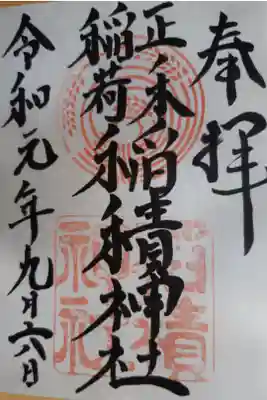 奉拝
正ノ木
稲荷
稲積神社
令和元年九月六日
稲積
神社